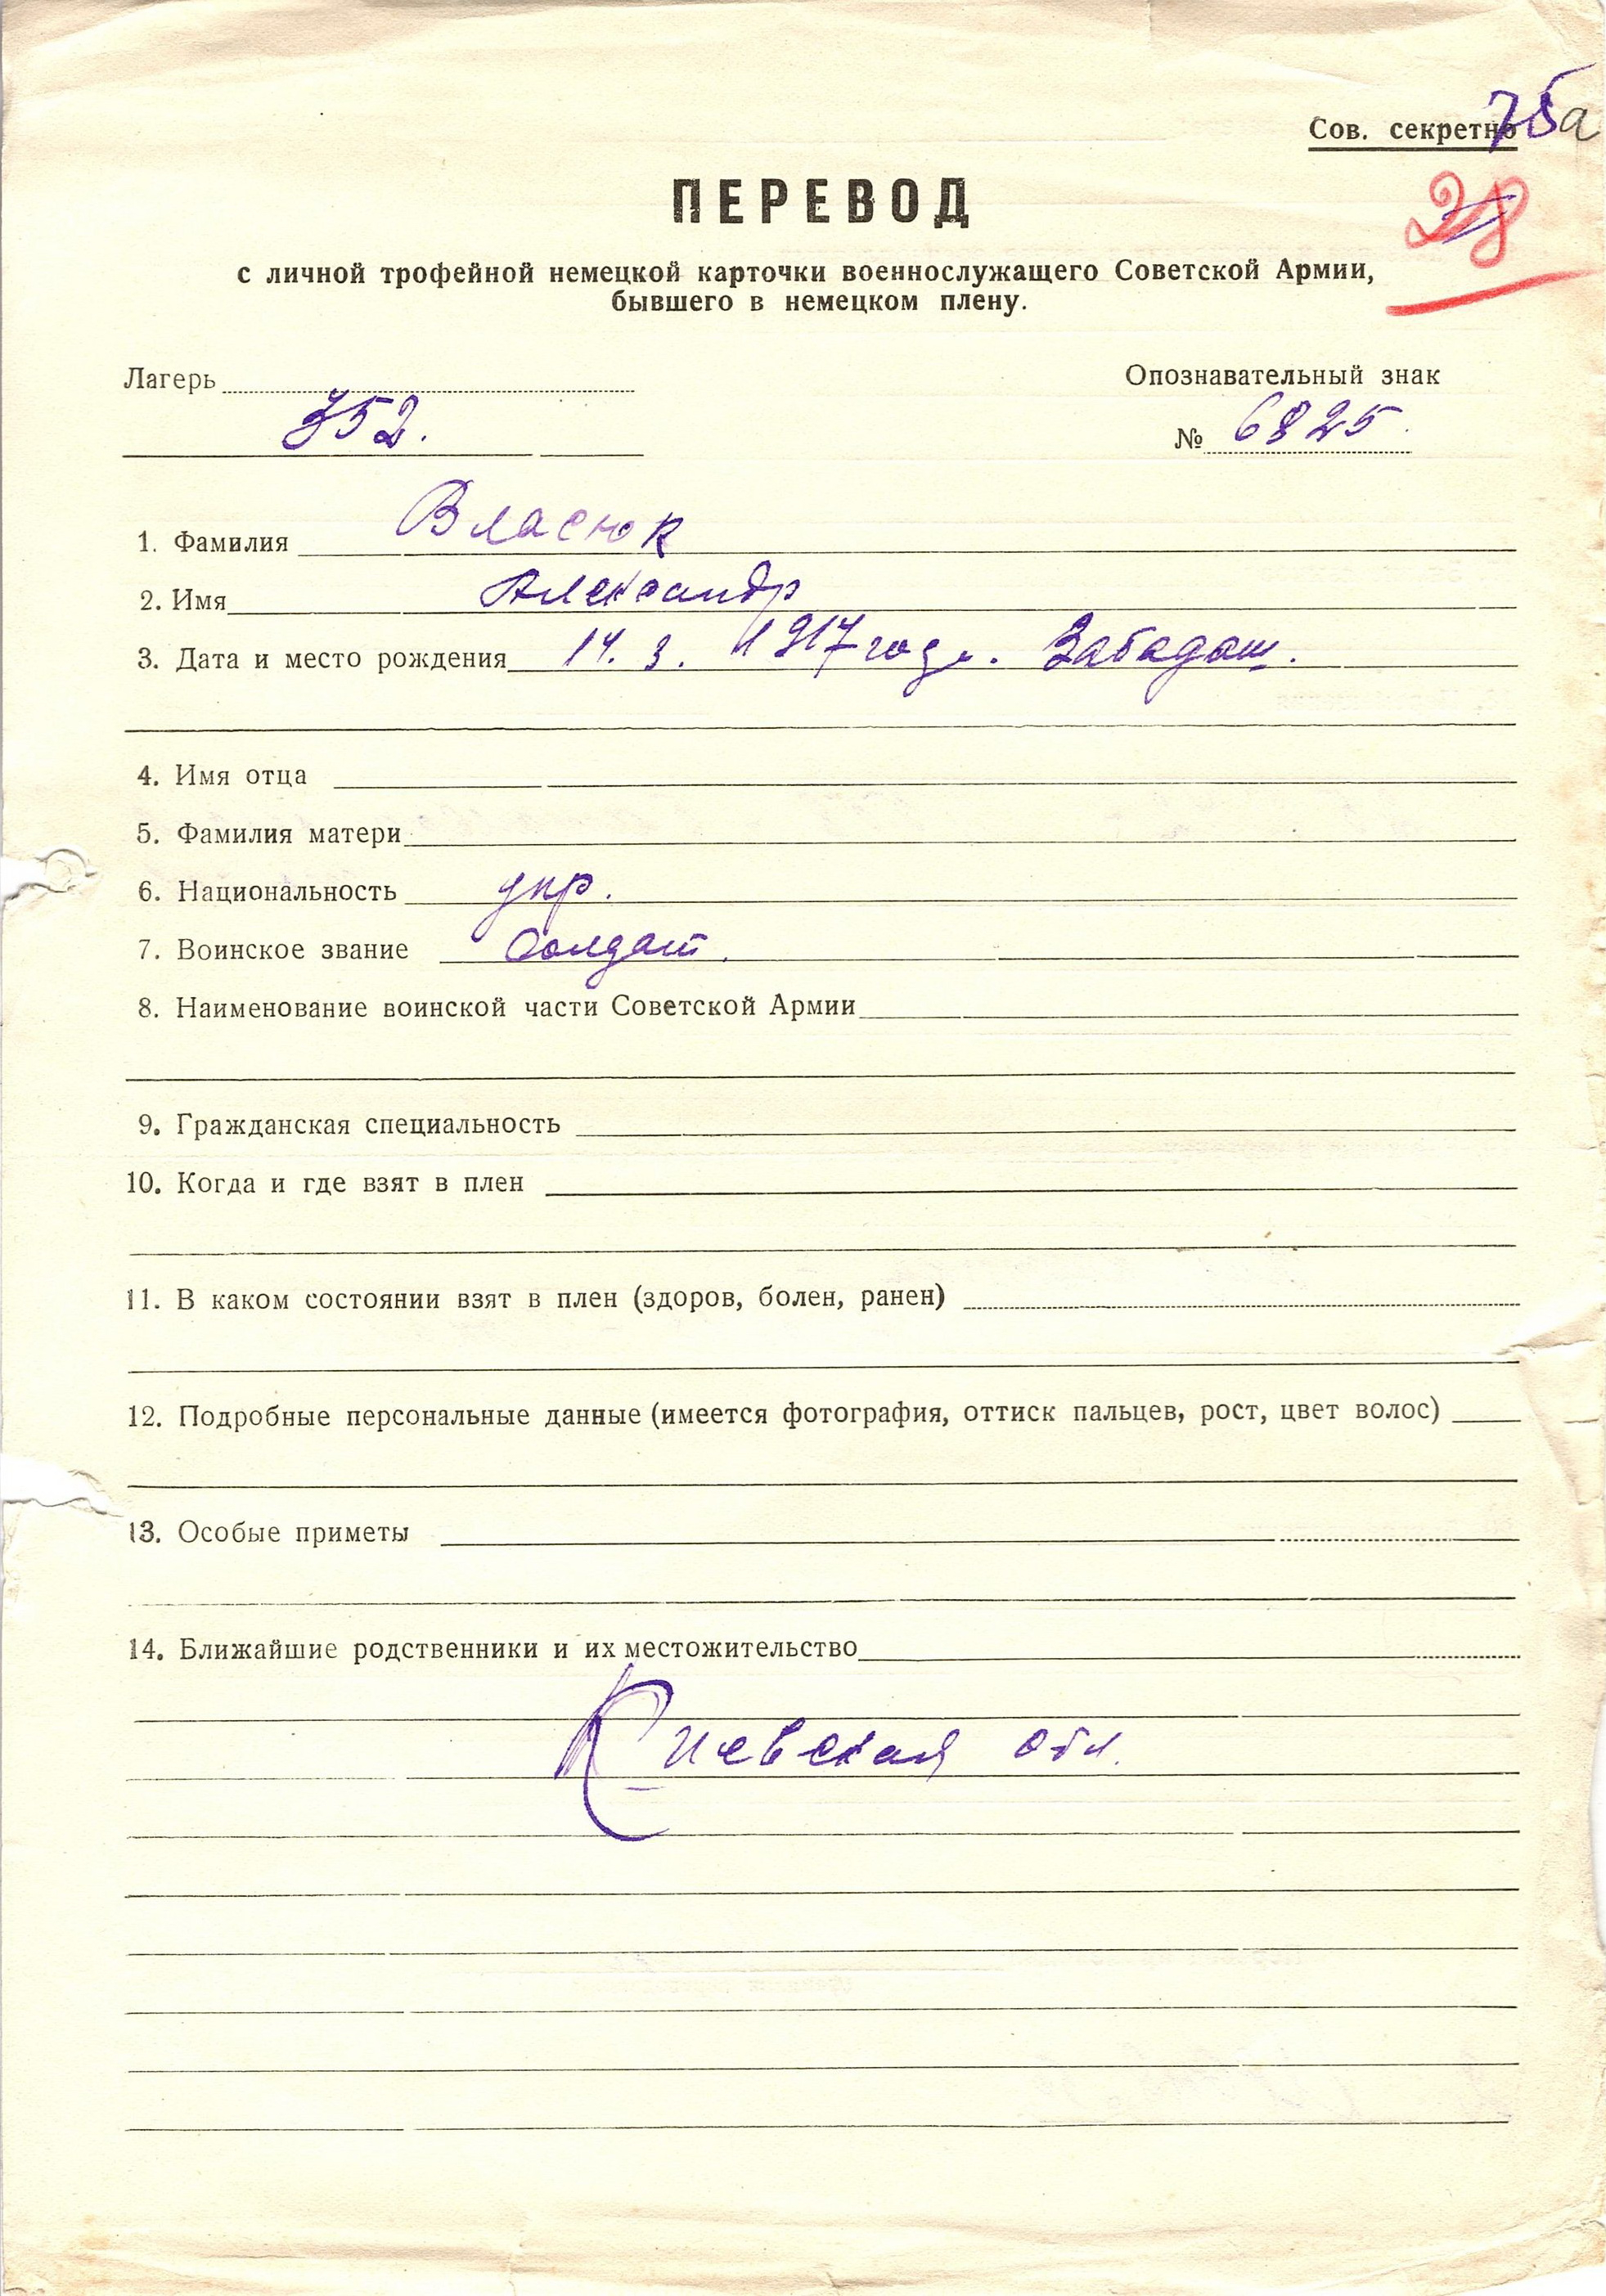 75а
Сов. секретно
28
ПЕРЕВОД
с личной трофейной немецкой карточки военнослужащего Советской Армии,
бывшего в немецком плену.
Лагерь
352.
Опознавательный знак
№ 6825.
1. Фамилия Власюк
2. Имя Александр
3. Дата и место рождения 14. 3. 1917 года. Забадаш.
4. Имя отца
5. Фамилия матери
6. Национальность укр.
7. Воинское звание Солдат.
8. Наименование воинской части Советской Армии
9. Гражданская специальность
10. Когда и где взят в плен
11. В каком состоянии взят в плен (здоров, болен, ранен)
12. Подробные персональные данные (имеется фотография, оттиск пальцев, рост, цвет волос)
13. Особые приметы
14. Ближайшие родственники и их местожительство
Киевская обл.